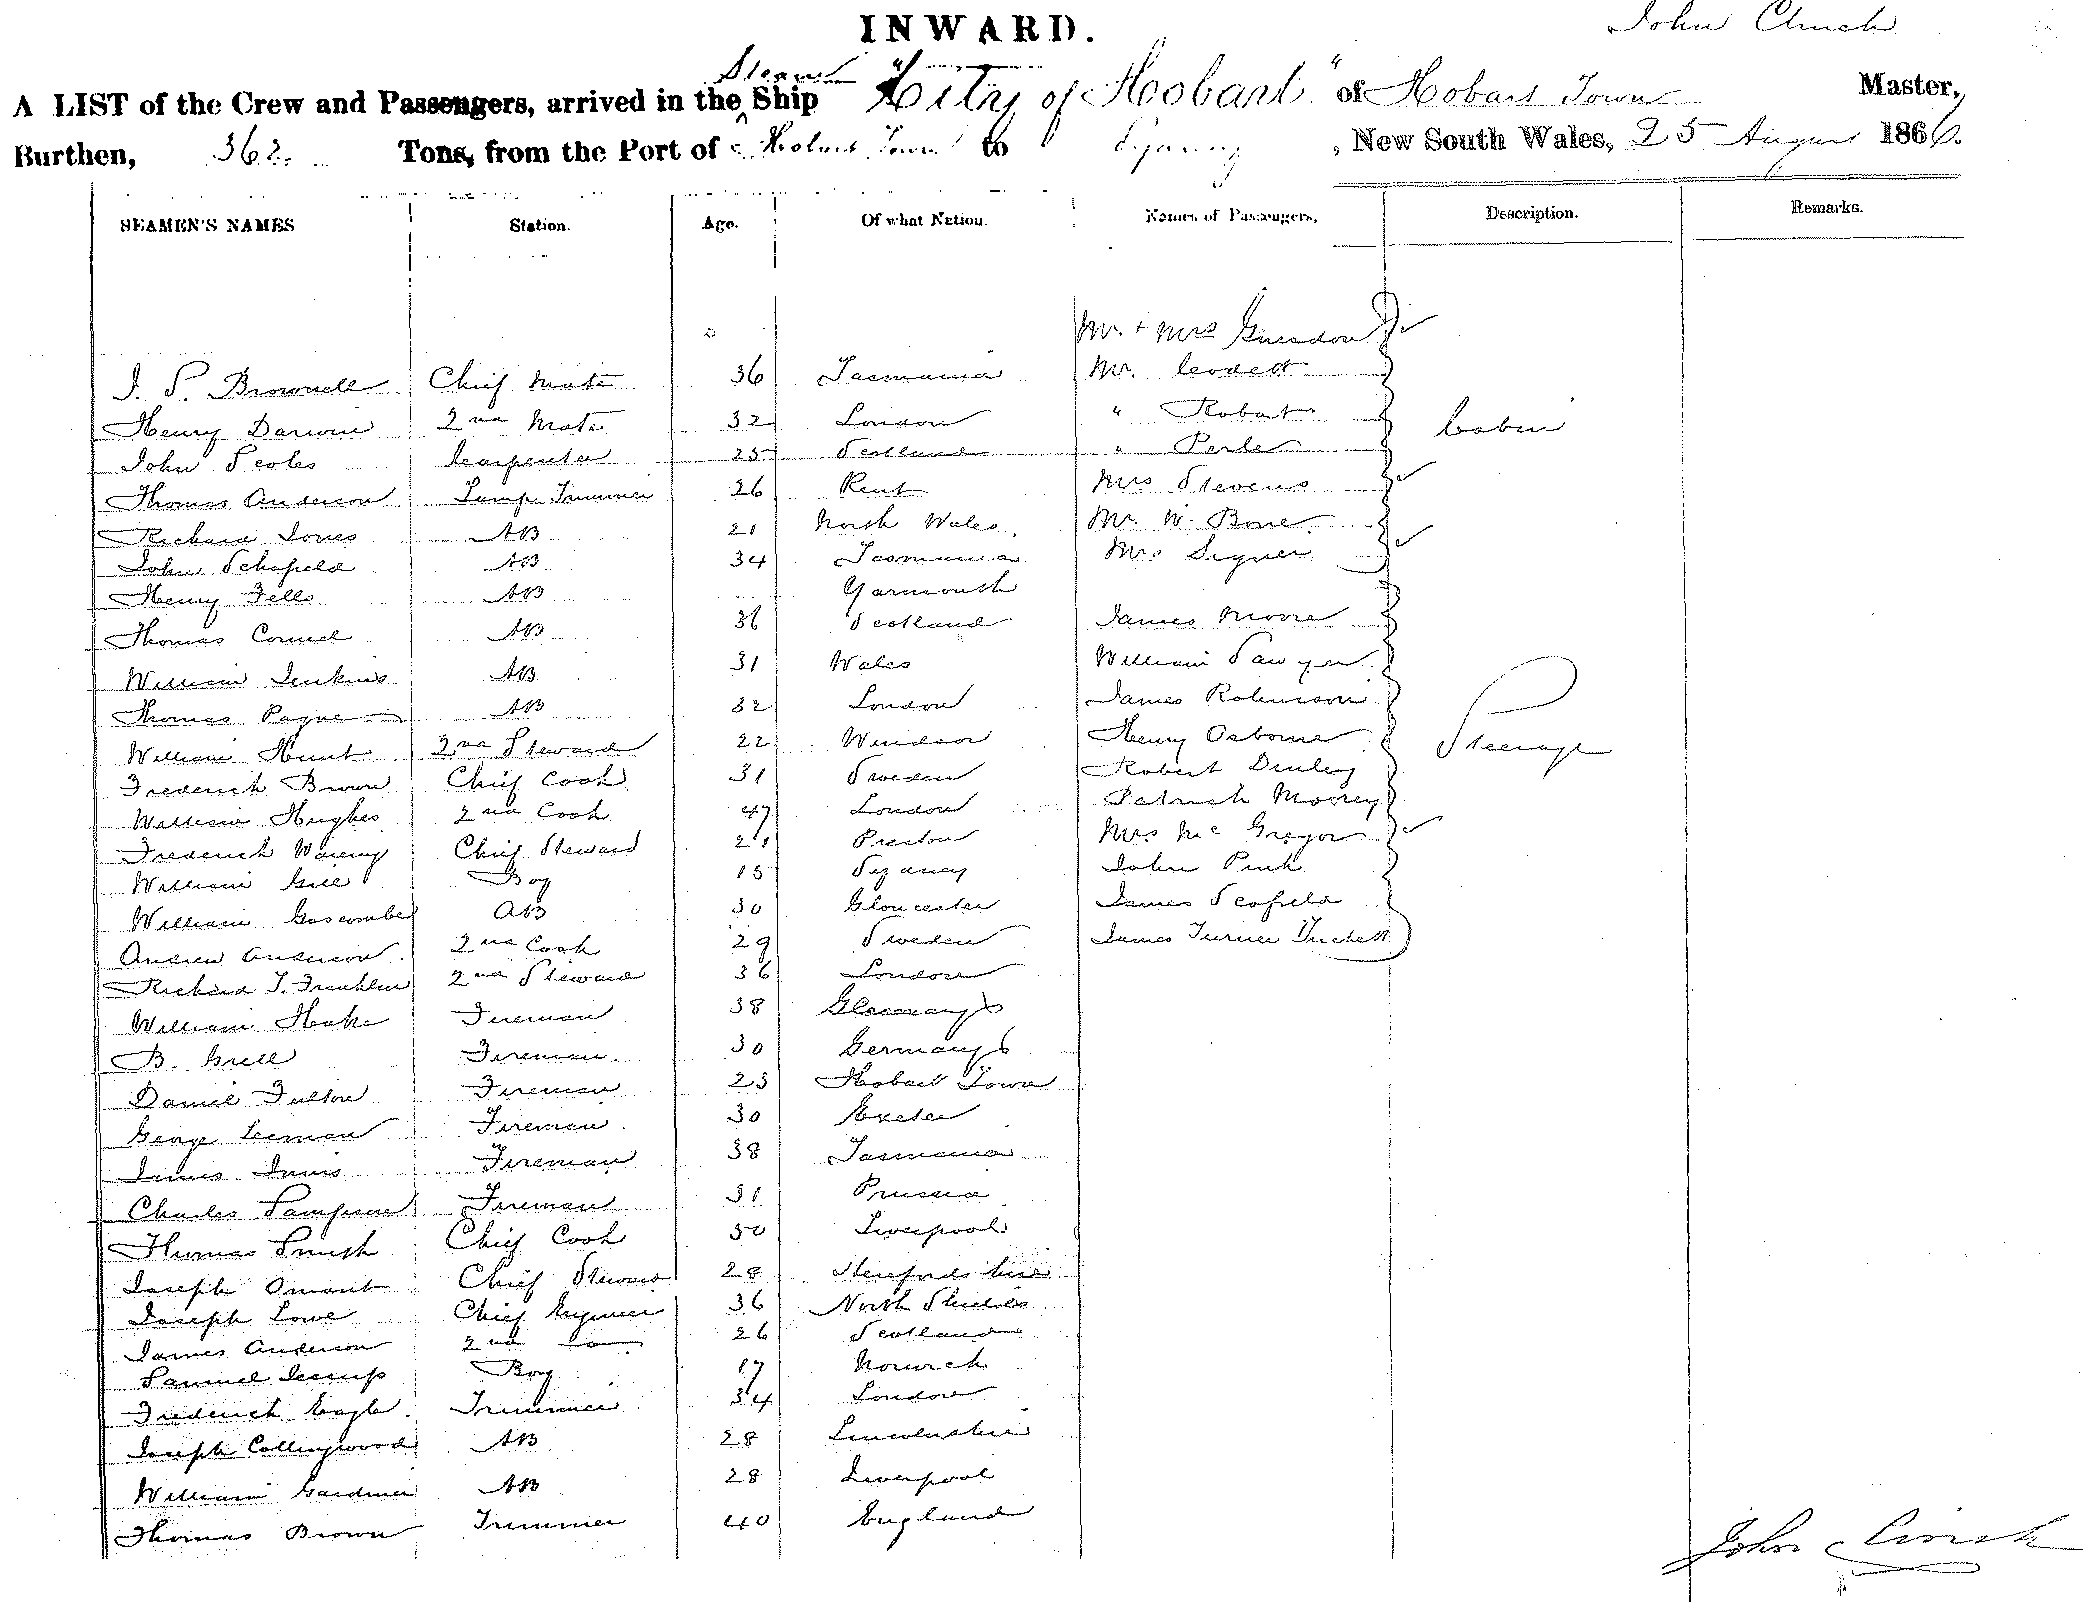 INWARD.
John Clinch
A LIST of the Crew and Passengers, arrived in the Steam Ship "City of Hobart" of Hobart Town Master,
Burthen, 362 Tons, from the Port of Hobart Town to Sydney, New South Wales, 25 August 1866.
SEAMEN'S NAMES Station. Age. Of what Nation. Names of Passengers, Description. Remarks.
Mr. + Mrs
J. S. Brownell Chief Mate 36 Tasmania Mr.
Henry Darwin 2nd Mate 32 London " Robart Cabin
John Scoles Carpenter 25 Scotland "
Thomas Anderson Lamp Trimmer 26 Kent Mrs Stevens
Richard Jones AB 21 North Wales Mr W. Bone
John Schofield AB 34 Tasmania Mrs
Henry Fells AB Yarmouth
Thomas AB 36 Scotland James Moore
William Jenkins AB 31 Wales William Sawyer
Thomas Payne AB 32 London James Robinson
William Hunt 2nd Steward 22 Windsor Henry Osborne Steerage
Frederick Brown Chief Cook 31 Sweden Robert
William Hughes 2nd Cook 47 London Patrick Mooney
Frederick Wareing Chief Steward 21 Preston Mrs Mc Gregor
William Gill Boy 15 Sydney John Pink
William Gascombe AB 30 Gloucester James Scofield
Andrew Anderson 2nd Cook 29 Sweden James Turner
Richard T. Franklin 2nd Steward 36 London
William Fireman 38
B. Grell Fireman 30 Germany
Daniel Fulton Fireman 23 Hobart Town
George Leeman Fireman 30 Exeter
James Innis Fireman 38 Tasmania
Charles Sampson Fireman 31 Prussia
Thomas Smith Chief Cook 50 Liverpool
Joseph Omant Chief Steward 28 Herefordshire
Joseph Lowe Chief Engineer 36 North Shields
James Anderson 2nd 26 Scotland
Samuel Jessup Boy 17 Norwich
Frederick Eagle Trimmer 34 London
Joseph Collingwood AB 28 Lincolnshire
William Gardiner AB 28 Liverpool
Thomas Brown Trimmer 40 England
John Clinch